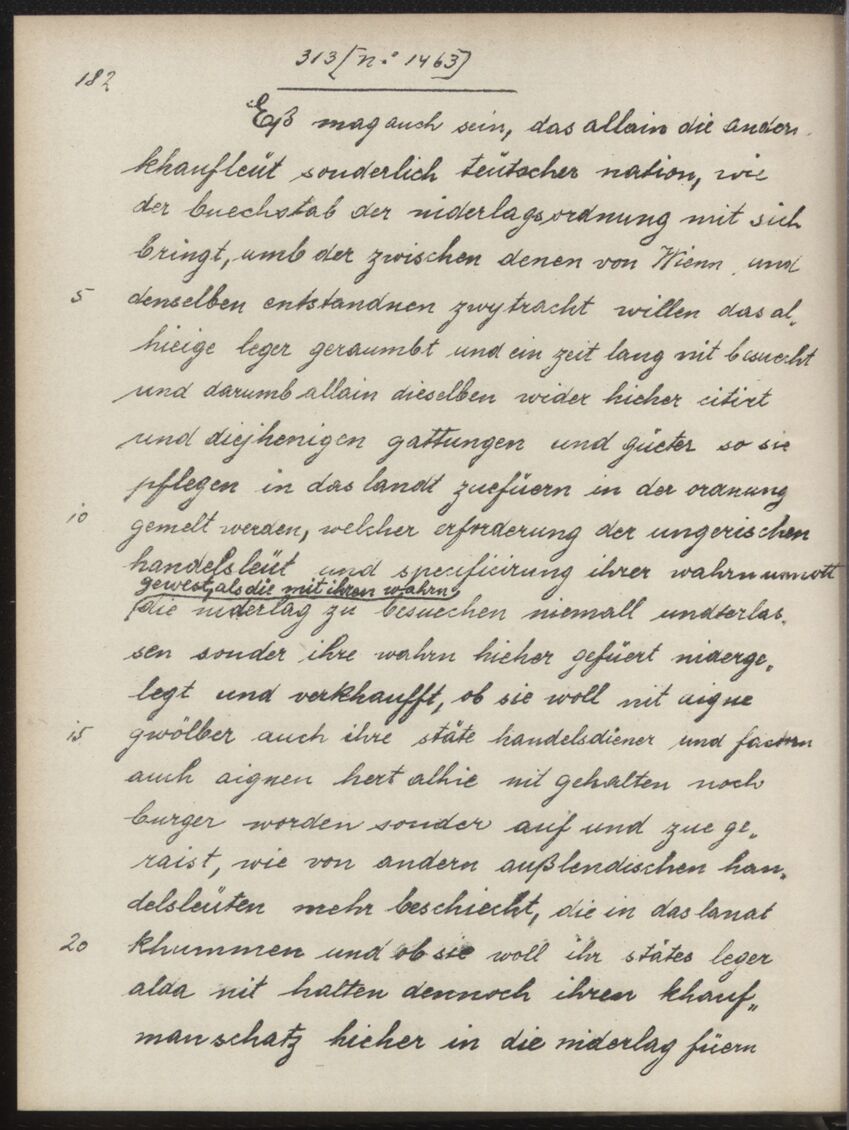 182
313 [n.° 1463]
Eß mag auch sein, das allain die andern
khaufleüt sonderlich teütscher nation, wie
der buechstab der niderlagsordnung mit sich
bringt, umb der zwischen denen von Wienn und
5 denselben entstandnen zwytracht willen das al„
hieige leger geraumbt und ein zeit lang nit besuecht
und darumb allain dieselben wider hieher citirt
und diejhenigen gattungen und güeter so sie
pflegen in das landt zuefüern in der ordnung
10 gemelt werden, welcher erforderung der ungerischen
handelsleüt und specificirung ihrer wahrn unnott
gewest, als die mit ihren wahrn
die niderlag zu besuechen niemall undterlas„
sen sonder ihre wahrn hieher gefüert niderge„
legt und verkhaufft, ob sie woll nit aigne
15 gwölber auch ihre stäte handelsdiener und factorn
auch aignen hert alhie nit gehalten noch
burger worden sonder auf und zue ge„
raist, wie von andern außlendischen han„
delsleüten mehr beschiecht, die in das landt
20 khummen und ob sie woll ihr stätes leger
alda nit halten dennoch ihren khauf„
manschatz hieher in die niderlag füern